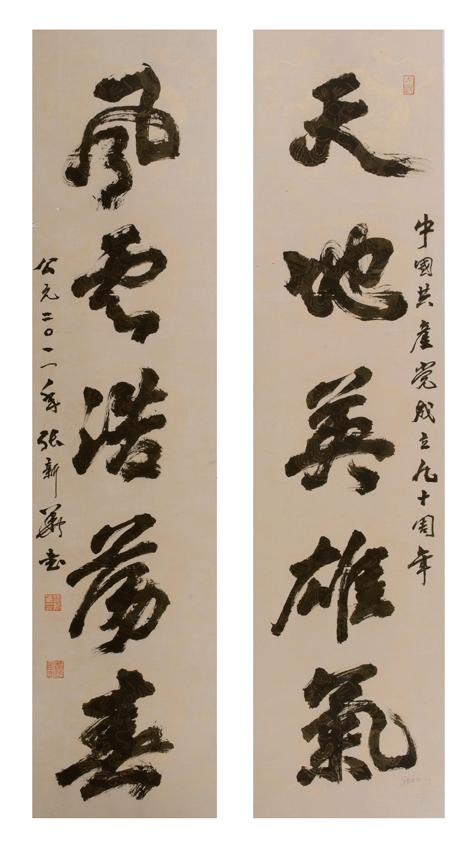 中國共產党成立九十周年
天地英雄氣
风云浩蕩春
公元二〇一一年张新華书